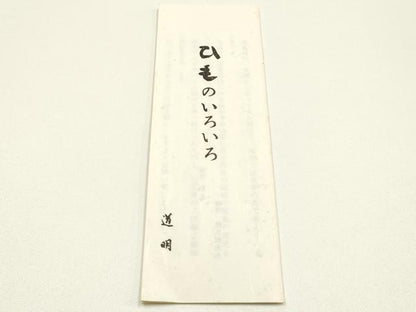 ひものいろいろ
道明